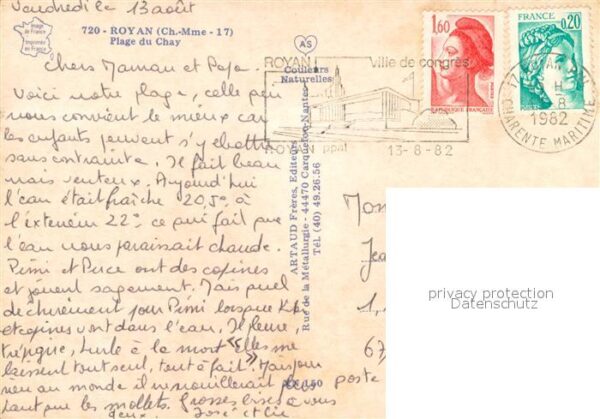 Vendredi le 13 août
Image de France
Imprimée en France
720 - ROYAN (Ch.-Mme - 17)
Plage du Chay
AS
Couleurs Naturelles
ROYAN
Ville de congrès
ROYAN ppal
13-8-82
1,60
REPUBLIQUE FRANÇAISE
FRANCE
0,20
POSTES
17
H
8
1982
CHARENTE MARITIME
Chers Maman et Papa.
Voici notre plage, celle qui
nous convient le mieux car
les enfants peuvent s'y ébattre
sans contrainte. Il fait beau
mais venteux. Aujourd'hui
l'eau était fraîche 20,5° à
l'extérieur 22° ce qui fait que
l'eau nous paraissait chaude.
Pimi et Perce ont des copines
et jouent sagement. Mais quel
déchirement pour Pimi lorsque
et copines vont dans l'eau. Il pleure,
trépigne, hurle à la mort "Elles me
laissent tout seul, tout à fait". Mais pour
rien au monde il ne mouillerait
tant que les mollets. Grosses bises à vous
deux. José et
ARTAUD Frères, Editeurs
Rue de la Métallurgie - 44470 Carquefou-Nantes
Tél. (40) 49.26.56
poste
67
privacy protection
Datenschutz